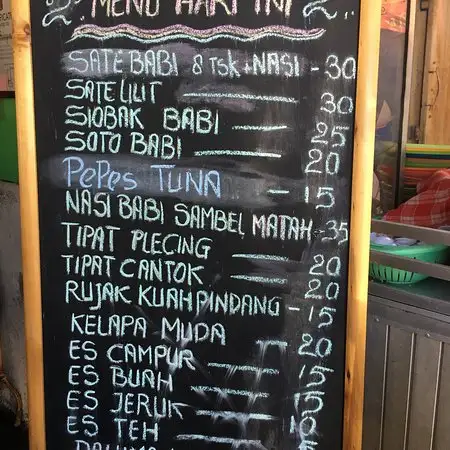 MENU HARI INI
SATE BABI 8 TSK + NASI - 30
SATE LILIT — 30
SIOBAK BABI — 25
SOTO BABI — 20
PEPES TUNA — 15
NASI BABI SAMBEL MATAH - 35
TIPAT PLECING — 20
TIPAT CANTOK — 20
RUJAK KUAH PINDANG - 15
KELAPA MUDA — 20
ES CAMPUR — 15
ES BUAH — 15
ES JERUK — 10
ES TEH — 5